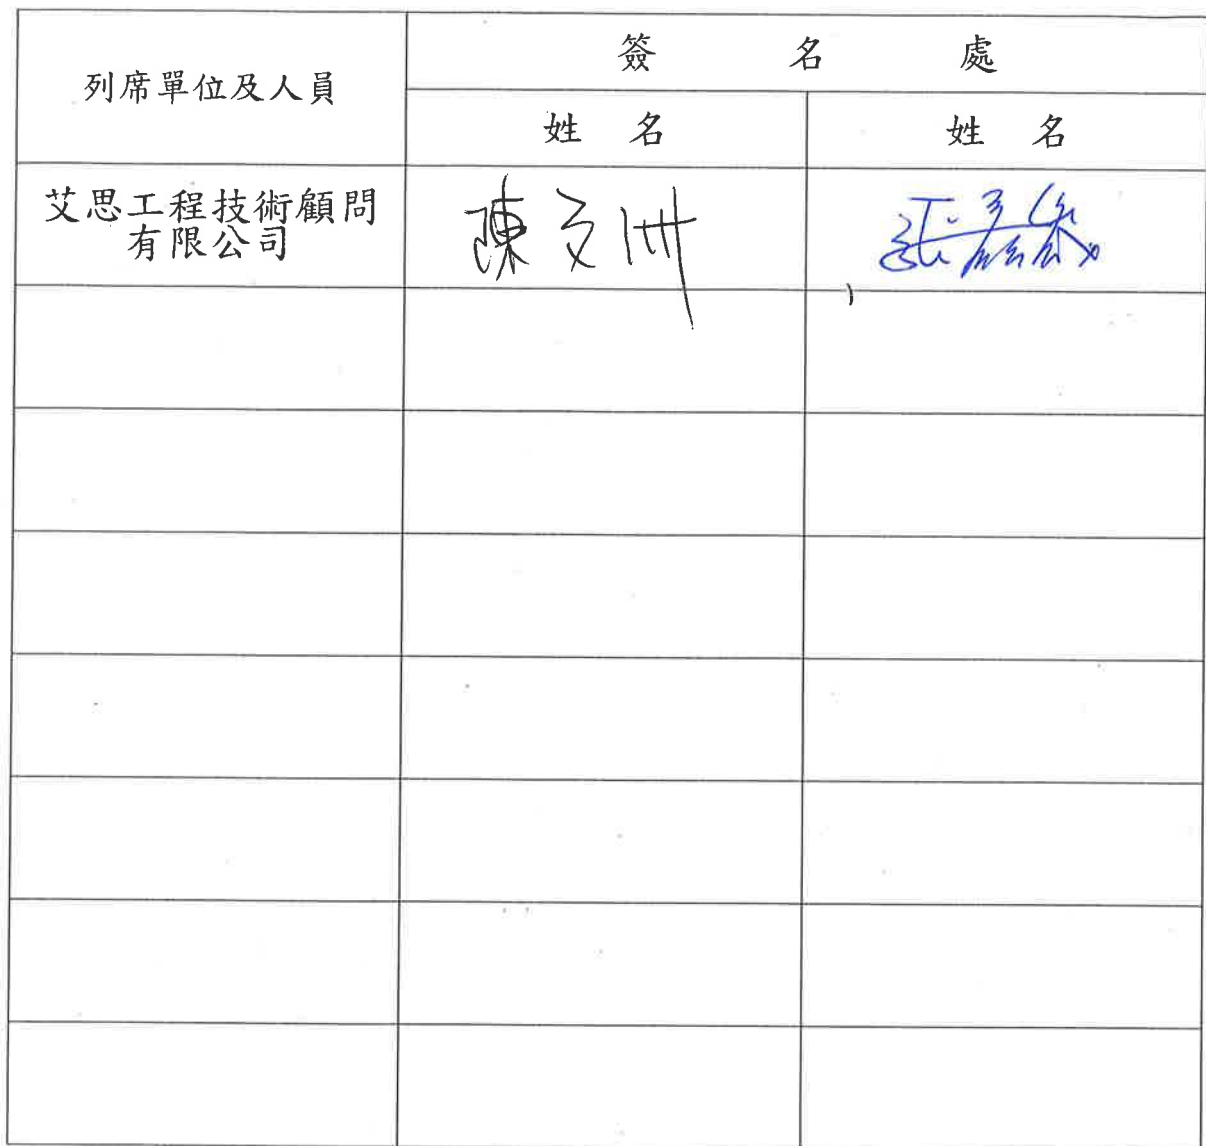 列席單位及人員
簽名處
姓名 姓名
艾思工程技術顧問
有限公司
陳文洲